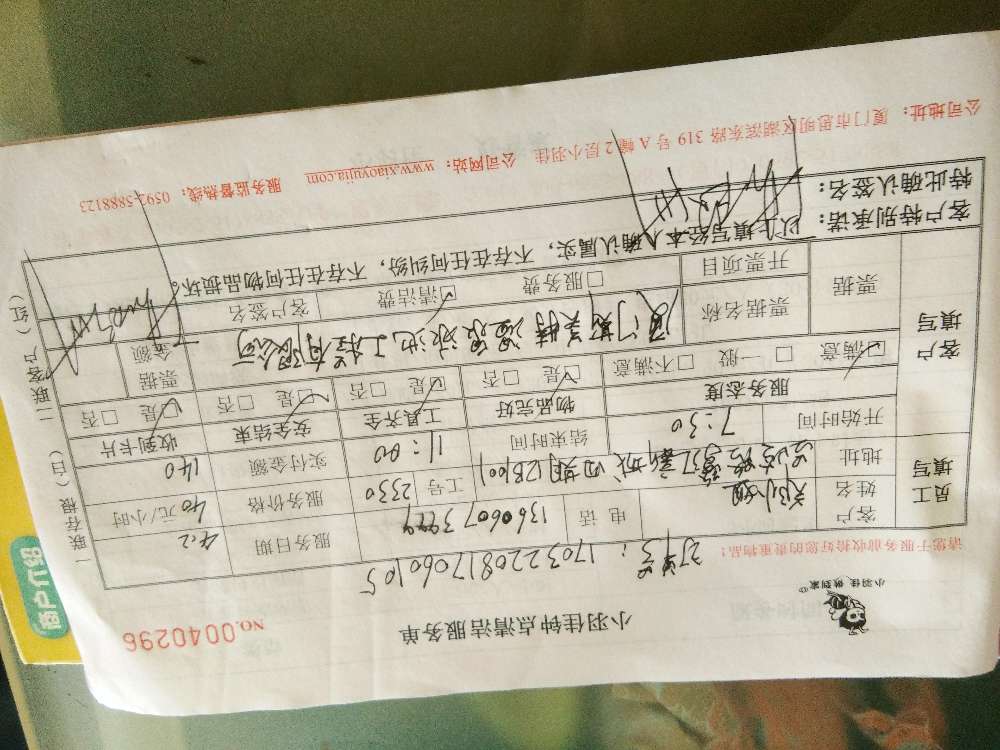 小羽佳 做到家
小羽佳钟点清洁服务单
No.0040296
订单号：170322081706010S
请您于服务前收拾好您的贵重物品！
员工填写
客户姓名
电话
服务日期 4.2
工号 2330
服务价格 40元/小时
地址
实付金额 140
开始时间 7:30
结束时间 11:00
收到卡片 ☑是 □否
安全结束 ☑是 □否
工具齐全 ☑是 □否
物品完好 ☑是 □否
服务态度 ☑满意 □一般 □不满意
客户填写
票据
票据名称 工程有限公司
票据金额
开票项目 □服务费 ☑清洁费
客户签名
客户特别承诺：以上填写经本人确认属实，不存在任何纠纷，不存在任何物品损坏。
特此确认签名：
公司地址：厦门市思明区湖滨东路 319 号 A 幢 2 层小羽佳 公司网站：www.xiaoyujia.com 服务监督热线：0592-5888123
一联存根（白） 二联客户（红）
商户介绍